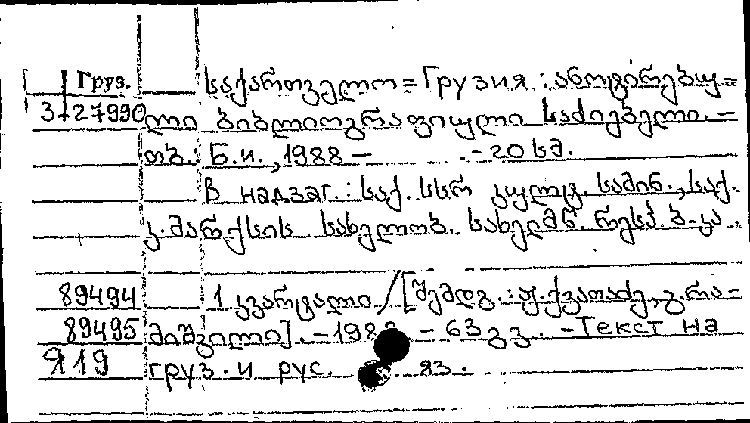 Груз.
საქართველო = Грузия : ანოტირებუ=
3-27990
ლი ბიბლიოგრაფიული საძიებელი. –
თბ. : Б.и., 1988 – . – 20 სმ.
В надзаг. : საქ. სსრ კულტ. სამინ., საქ.
კ. მარქსის სახელობ. სახელმწ. რესპ. ბ-კა.
89494
1 კვარტალი / [შემდგ. :
89495
მიშვილი]. – 198 – 63 გვ. – Текст на
919
груз. и рус. яз.